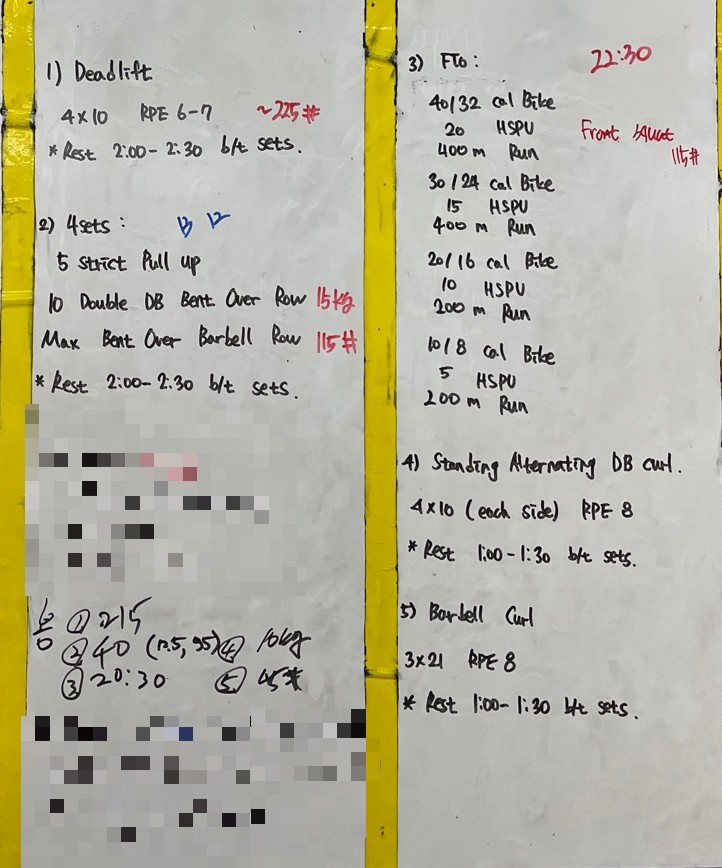 1) Deadlift
4x10 RPE 6-7 ~225#
* Rest 2:00-2:30 b/t sets.
2) 4sets: 13 12
5 strict Pull up
10 Double DB Bent Over Row 15kg
Max Bent Over Barbell Row 115#
* Rest 2:00-2:30 b/t sets.
① 215
② 40 (12.5, 95) ④ 10kg
③ 20:30 ⑤ 45#
3) FTo: 22:30
40/32 cal Bike
20 HSPU Front squat
400 m Run 115#
30/24 cal Bike
15 HSPU
400 m Run
20/16 cal Bike
10 HSPU
200 m Run
10/8 cal Bike
5 HSPU
200 m Run
4) Standing Alternating DB curl.
4x10 (each side) RPE 8
* Rest 1:00-1:30 b/t sets.
5) Barbell Curl
3x21 RPE 8
* Rest 1:00-1:30 b/t sets.